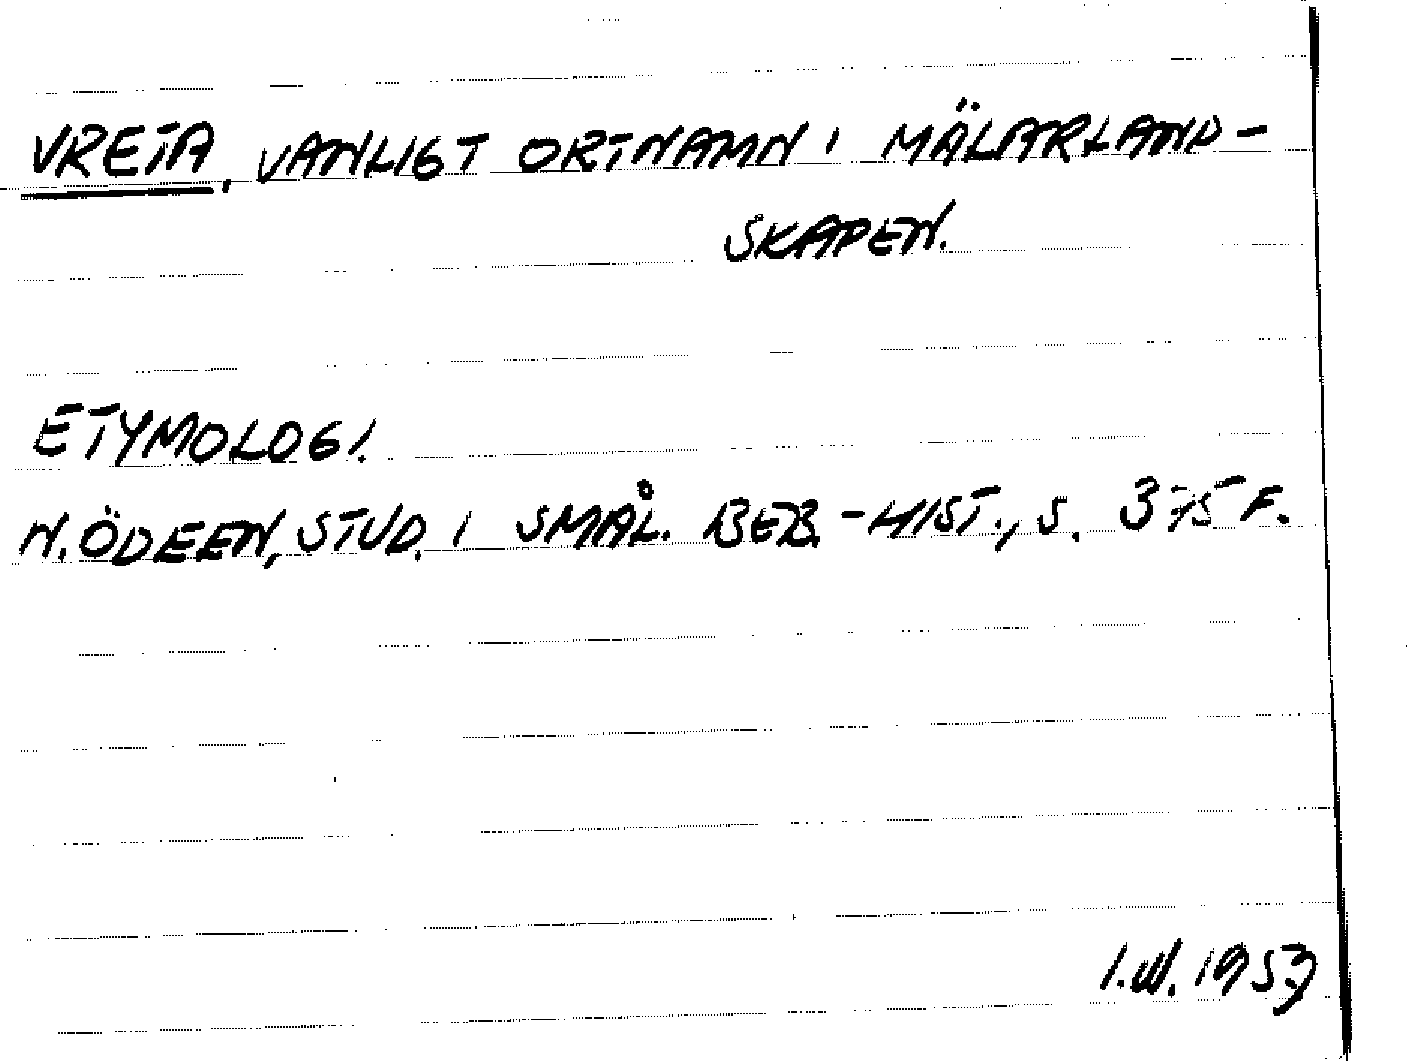 VRETA, VANLIGT ORTNAMN I MÄLARLAND-
SKAPEN.
ETYMOLOGI.
N. ÖDEEN, STUD. I SMÅL. BEB.-HIST., S. 375 F.
1.III.1953